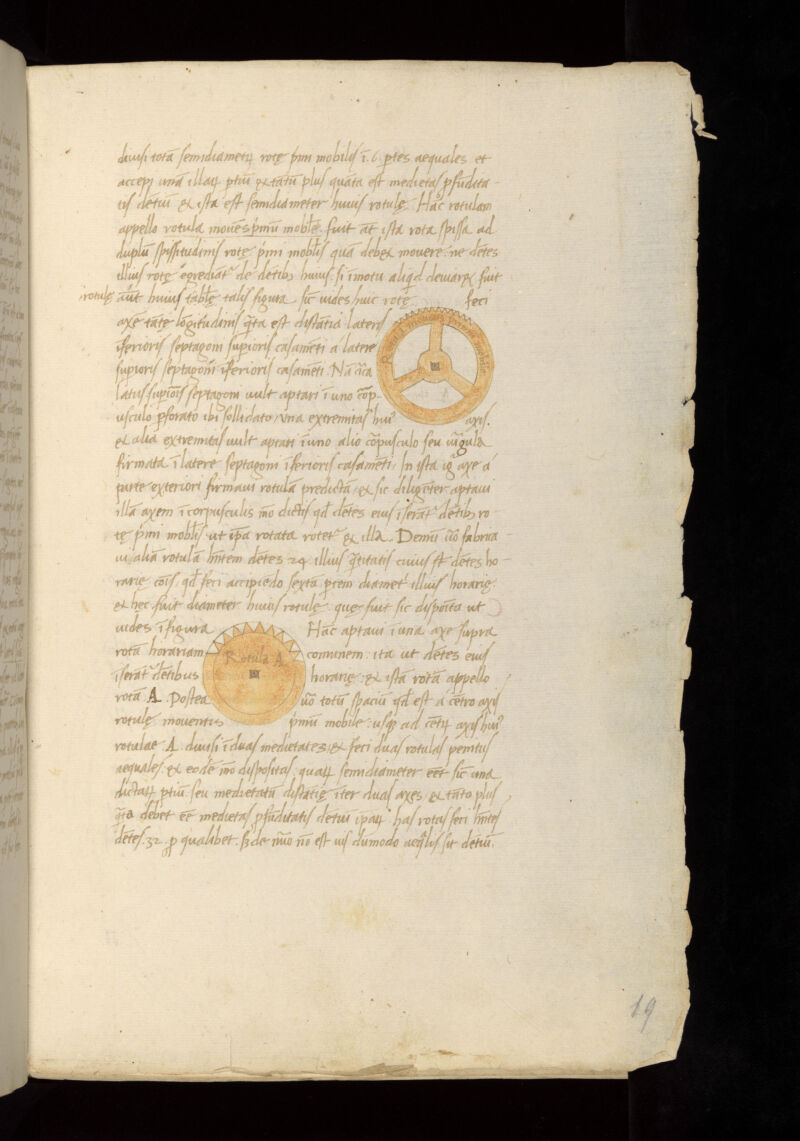 diuisi totā semidiametꝝ rotę p̄mi mobilis ī .6. ꝑtes aequales et
accepi unā illaꝝ ptiū & tātū plus quāta est medietas pfūdita-
tis dētiū & ista est semidiameter huius rotulę. Hāc rotulam
appello rotula mouēs p̄mū moble. fuit āt ista rota spissa ad
duplū spissitudinis rotę p̄mi moblis quā debet mouere. ne dētes
illius rotę egrediāt de dētib, huius. si ī motu aliqd deuiaret fuit
rotulę
aūt huius tablę talis figura sic uides huic rotę feci
axē tātę lōgitudinis q̄ta est distātia lateris
īferioris septagoni supioris casamēti a latere
supioris septagoni īferioris casamēti. Nā circa
latus supiois septagoni uult aptari ī uno cōp-
usculo pforato ibi sollidato, una extremitas hui' axis.
& alia extremitas uult aptari ī uno alio cōpusculo seu uirgula
firmata ī latere septagoni īferioris casamēti. In ista ig axe a
parte exteriori firmaui rotulā predictā, & sic diligēter aptaui
illā axem ī corpusculis mō dictis qd dētes eius īserāt dētib, ro-
tę p̄mi moblis ut ipa rotata rotet & illa. Demū uō fabrica-
ui aliā rotulā hn̄tem dētes 24 illius q̄titatis cuius st dētes ho-
rarię cōis. qd feci accipiēdo sextā ptem diamet illius horarię.
& hec fuit diameter huius rotulę. quę fuit sic disposita ut
uides ī figura Hāc aptaui ī una axe supra
rotā horariam comunem. ita ut dētes eius
īserāt dētibus horarię. & istā rotā appello
rotā. A. Postea uō totū spaciū qd est a cētro axis
rotulę mouentis p̄mū mobile. usq ad cētꝝ axis hui'
rotulae .A. diuisi ī duas medietates, & feci duas rotulas penitus
aequales. & eodē mō dispositas. quaꝝ semidiameter eēt sic una
dictaꝝ ptiū. seu medietatū distātię īter duas axes, & tāto plus
q̄ta debet eē medietas pfūditatis dētiū ipaꝝ. has rotas feci hn̄tes
dētes .32. ꝑ qualibet. sꝫ de nūo nō est uis dūmodo aeq̄lis sit dētiū.
Rotula A
19